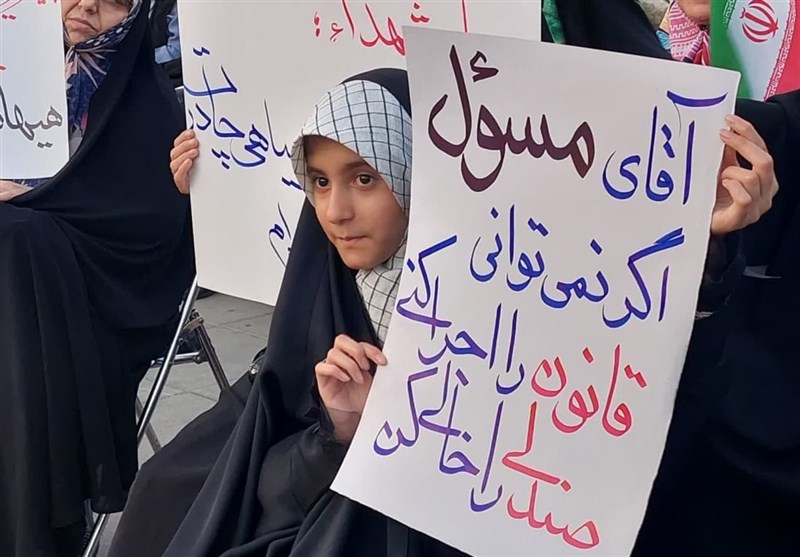 آقای مسؤل
اگر نمی توانی
قانون را اجرا کنی
صندلی را خالی کن
شهداء؛
سیاهی چادرت
هیها